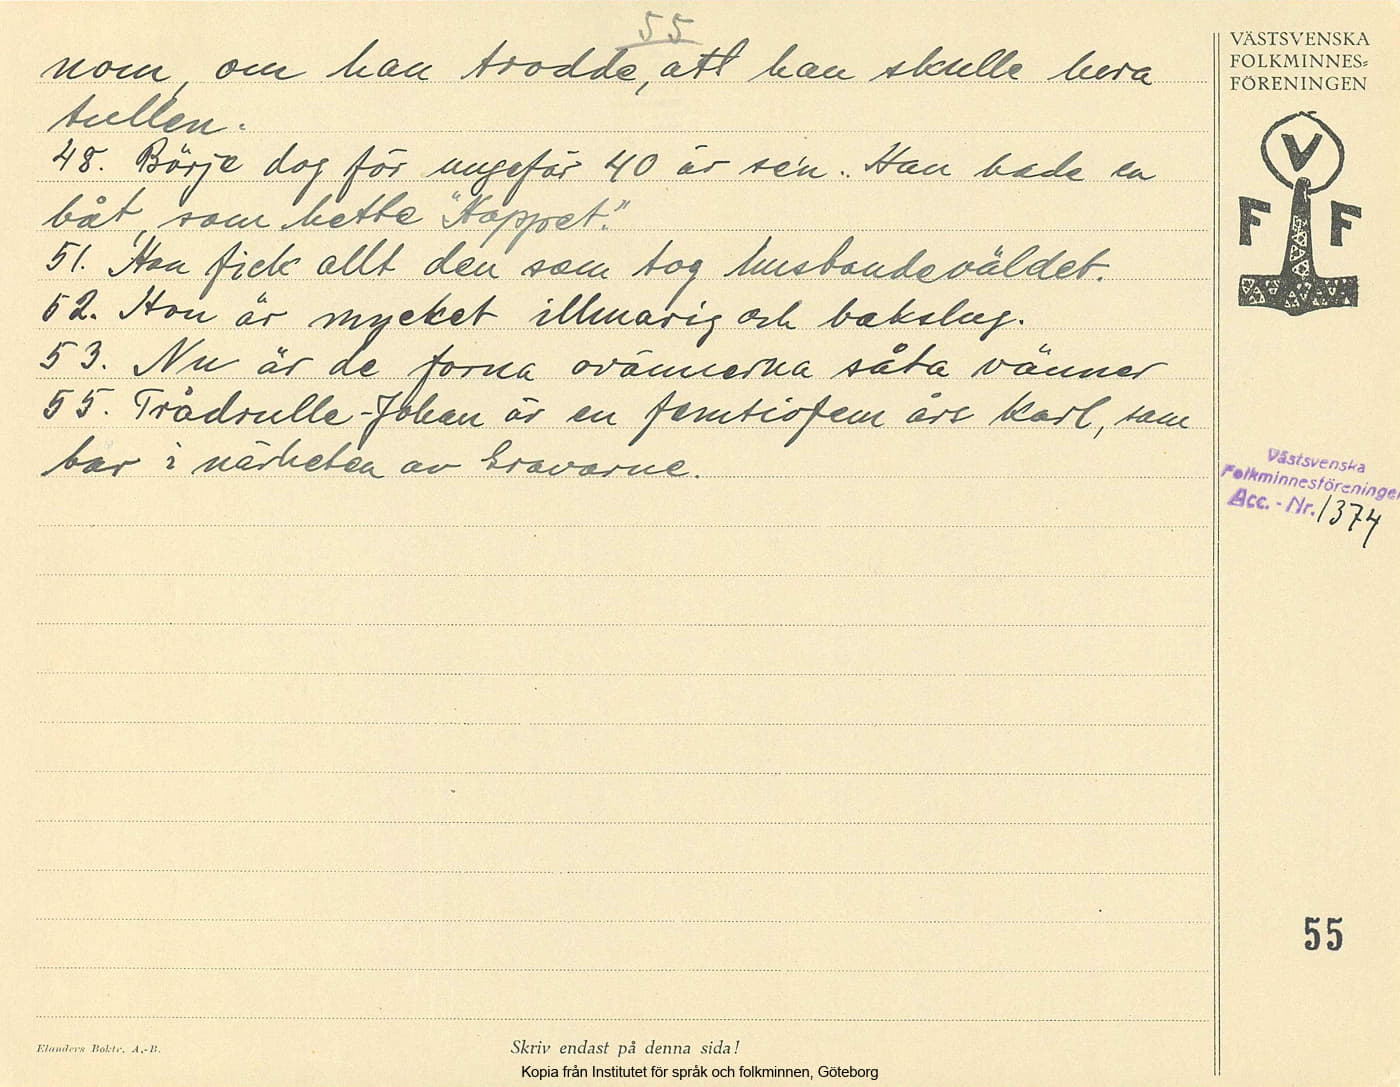 55
nom, om han trodde, att han skulle lura
tullen.
48. Börje dog för ungefär 40 år se'n. Han hade en
båt, som hette "Hoppet."
51. Hon fick allt den som tog husbondeväldet.
52. Hon är mycket illmarig och bakslug.
53. Nu är de forna ovännerna såta vänner
55. Trådrulle-Johan är en femtiofem års karl, som
bor i närheten av Gravarne.
VÄSTSVENSKA
FOLKMINNES=
FÖRENINGEN
V
F F
Västsvenska
Folkminnesföreningen
Acc. - Nr. 1374
55
Elanders Boktr. A.-B.
Skriv endast på denna sida!
Kopia från Institutet för språk och folkminnen, Göteborg